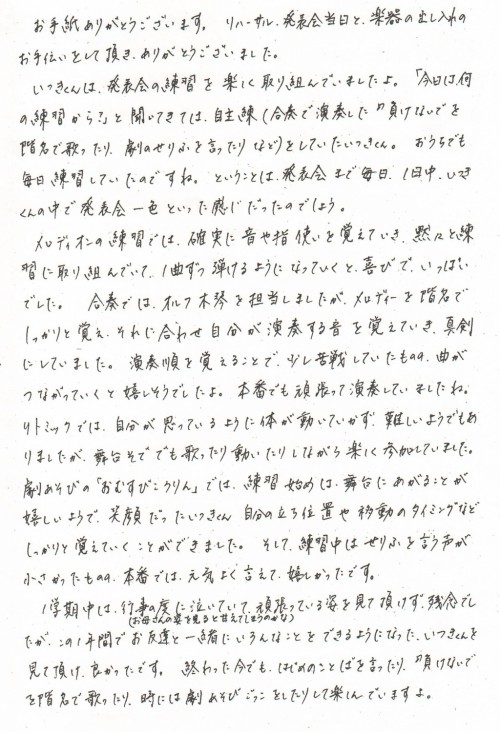 お手紙ありがとうございます。 リハーサル、発表会当日と、楽器の出し入れの
お手伝いをして頂き、ありがとうございました。
いつきくんは、発表会の練習を楽しく取り組んでいましたよ。「今日は何
の練習から?」と聞いてきては、自主練(合奏で演奏した"負けないで"を
階名で歌ったり、劇のせりふを言ったりなど)をしていたいつきくん。 おうちでも
毎日練習していたのですね。 ということは、発表会まで毎日、1日中、いつき
くんの中で発表会一色といった感じだったのでしょう。
メロディオンの練習では、確実に音や指使いを覚えていき、黙々と練
習に取り組んでいて、1曲ずつ弾けるようになっていくと、喜びで、いっぱい
でした。 合奏では、オルフ木琴を担当しましたが、メロディーを階名で
しっかりと覚え、それに合わせ自分が演奏する音を覚えていき、真剣
にしていました。 演奏順を覚えることで、少し苦戦していたものの、曲が
つながっていくと嬉しそうでしたよ。 本番でも頑張って演奏していましたね。
リトミックでは、自分が思っているように体が動いていかず、難しいようでもあ
りましたが、舞台そででも歌ったり動いたりしながら楽しく参加していました。
劇あそびの「おむすびころりん」では、練習始めは、舞台にあがることが
嬉しいようで、笑顔だったいつきくん 自分の立ち位置や移動のタイミングなど
しっかりと覚えていくことができました。 そして、練習中はせりふを言う声が
小さかったものの、本番では、元気よく言えて、嬉しかったです。
1学期中は、行事の度に泣いていて、頑張っている姿を見て頂けず、残念でし
(お母さんの姿を見ると甘えてしまうのかな)
たが、この1年間でお友達と一緒にいろんなことをできるようになった、いつきくんを
見て頂け、良かったです。 終わった今でも、はじめのことばを言ったり、"負けないで"
を階名で歌ったり、時には劇あそびごっこをしたりして楽しんでいますよ。